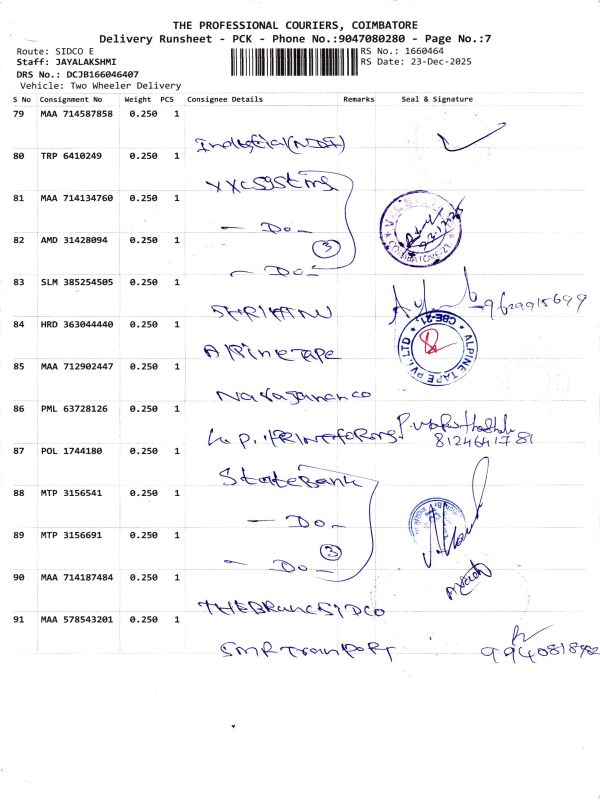 THE PROFESSIONAL COURIERS, COIMBATORE
Delivery Runsheet - PCK - Phone No.:9047080280 - Page No.:7
Route: SIDCO E
RS No.: 1660464
Staff: JAYALAKSHMI
RS Date: 23-Dec-2025
DRS No.: DCJB166046407
Vehicle: Two Wheeler Delivery
S No Consignment No Weight PCS Consignee Details Remarks Seal & Signature
79 MAA 714587858 0.250 1
Industrial(NDI)
80 TRP 6410249 0.250 1
VXL Systems
81 MAA 714134760 0.250 1
- Do -
82 AMD 31428094 0.250 1
3
- Do -
83 SLM 385254505 0.250 1
SHRI
9629915699
84 HRD 363044440 0.250 1
Alpine TAPE
ALPINE TAPE PVT. LTD * CBE-21 *
85 MAA 712902447 0.250 1
Narayanan co
86 PML 63728126 0.250 1
K.P. PRINT forms
8124641781
87 POL 1744180 0.250 1
State Bank
88 MTP 3156541 0.250 1
- Do -
89 MTP 3156691 0.250 1
3
- Do -
90 MAA 714187484 0.250 1
THE Branc SIDCO
91 MAA 578543201 0.250 1
SMR Tranport